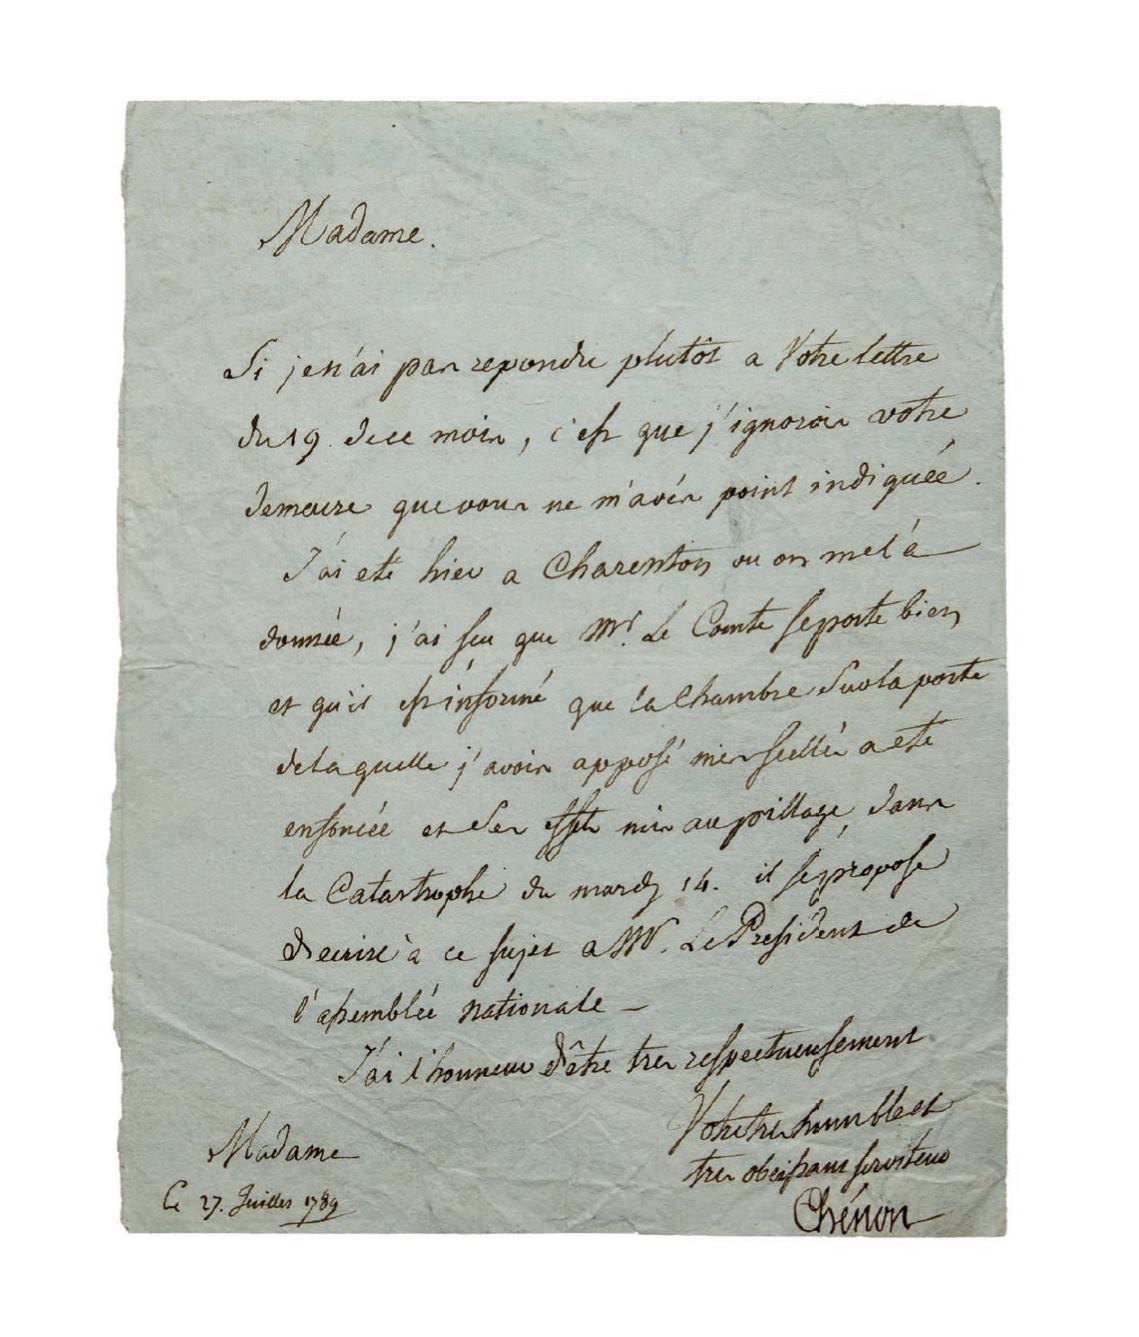 Madame.
Si je n'ai pas repondu plutôt a Votre lettre
du 19 de ce mois, c'est que j'ignorois votre
demeure que vous ne m'avés point indiquéé.
J'ai eté hier a Charenton ou on me l'a
donnée, j'ai sçu que Mr. Le Comte se porte bien
et qu'il est informé que la Chambre sur la porte
de laquelle j'avois apposé mes scellés a eté
enfoncéé et ses effets mis au pillage, dans
la Catastrophe du mardy 14. il se propose
d'ecrire à ce sujet a Mr. Le President de
l'assembléé nationale —
J'ai l'honneur d'être tres respectueusement
Votre tres humble et
tres obeissant serviteur
Chénon
Madame
Ce 27. Juillet 1789